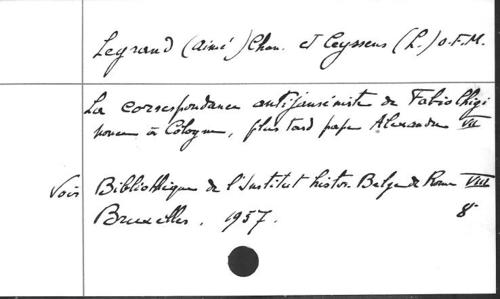 Legrand (Aimé) Chan. et Ceyssens (L.) O.F.M.
La correspondance antijanséniste de Fabio Chigi
nonce à Cologne, plus tard pape Alexandre VII
Voir Bibliothèque de l'Institut histor. Belge de Rome VIII
Bruxelles. 1957. 8°